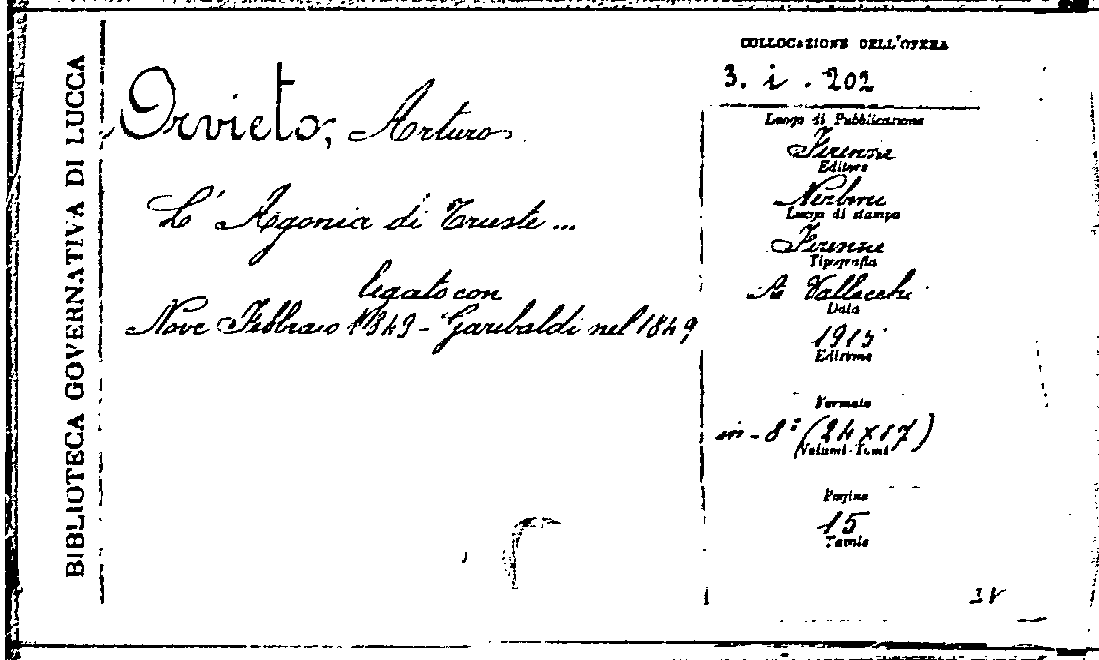 BIBLIOTECA GOVERNATIVA DI LUCCA
Orvieto, Arturo
L'Agonia di Trieste...
legato con
Nove Febbraio 1849 - Garibaldi nel 1849
COLLOCAZIONE DELL'OPERA
3. i. 202
Luogo di Pubblicazione
Firenze
Editore
Nerbini
Luogo di stampa
Firenze
Tipografia
A. Vallecchi
Data
1915
Edizione
Formato
in-8° (24x17)
Volumi-Tomi
Pagine
15
Tavole